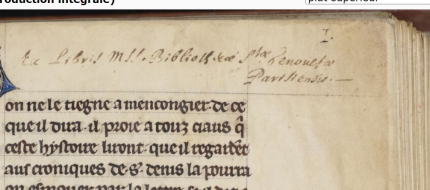 roduction intégrale)
plat supérieur
I.
Ex Libris Mss. Bibliothecæ stæ Genovefæ
Parisiensis.
on ne le tiegne a mencongier. de ce
que il dira. il proie a touz ciaus q̃
ceste hystoire liront. que il regardẽt
aus croniques de. s. denis la pourra